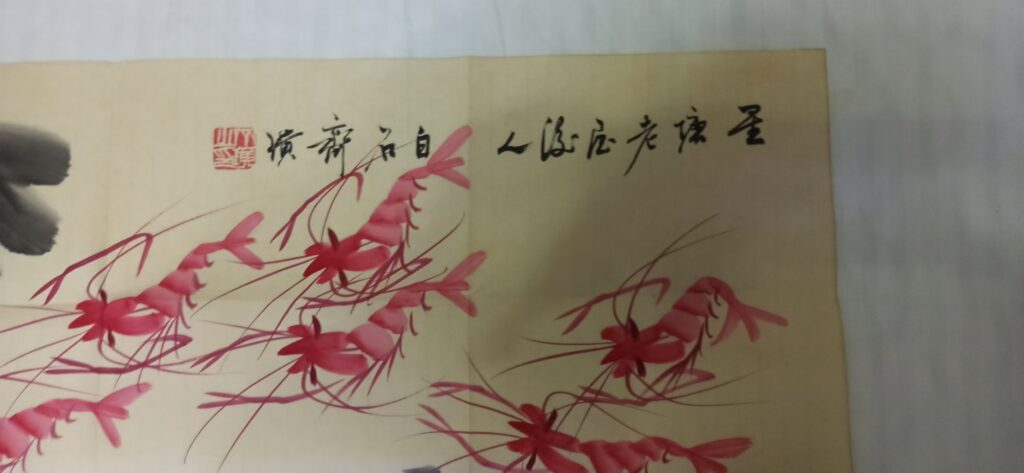 星塘老屋後人白石齊璜